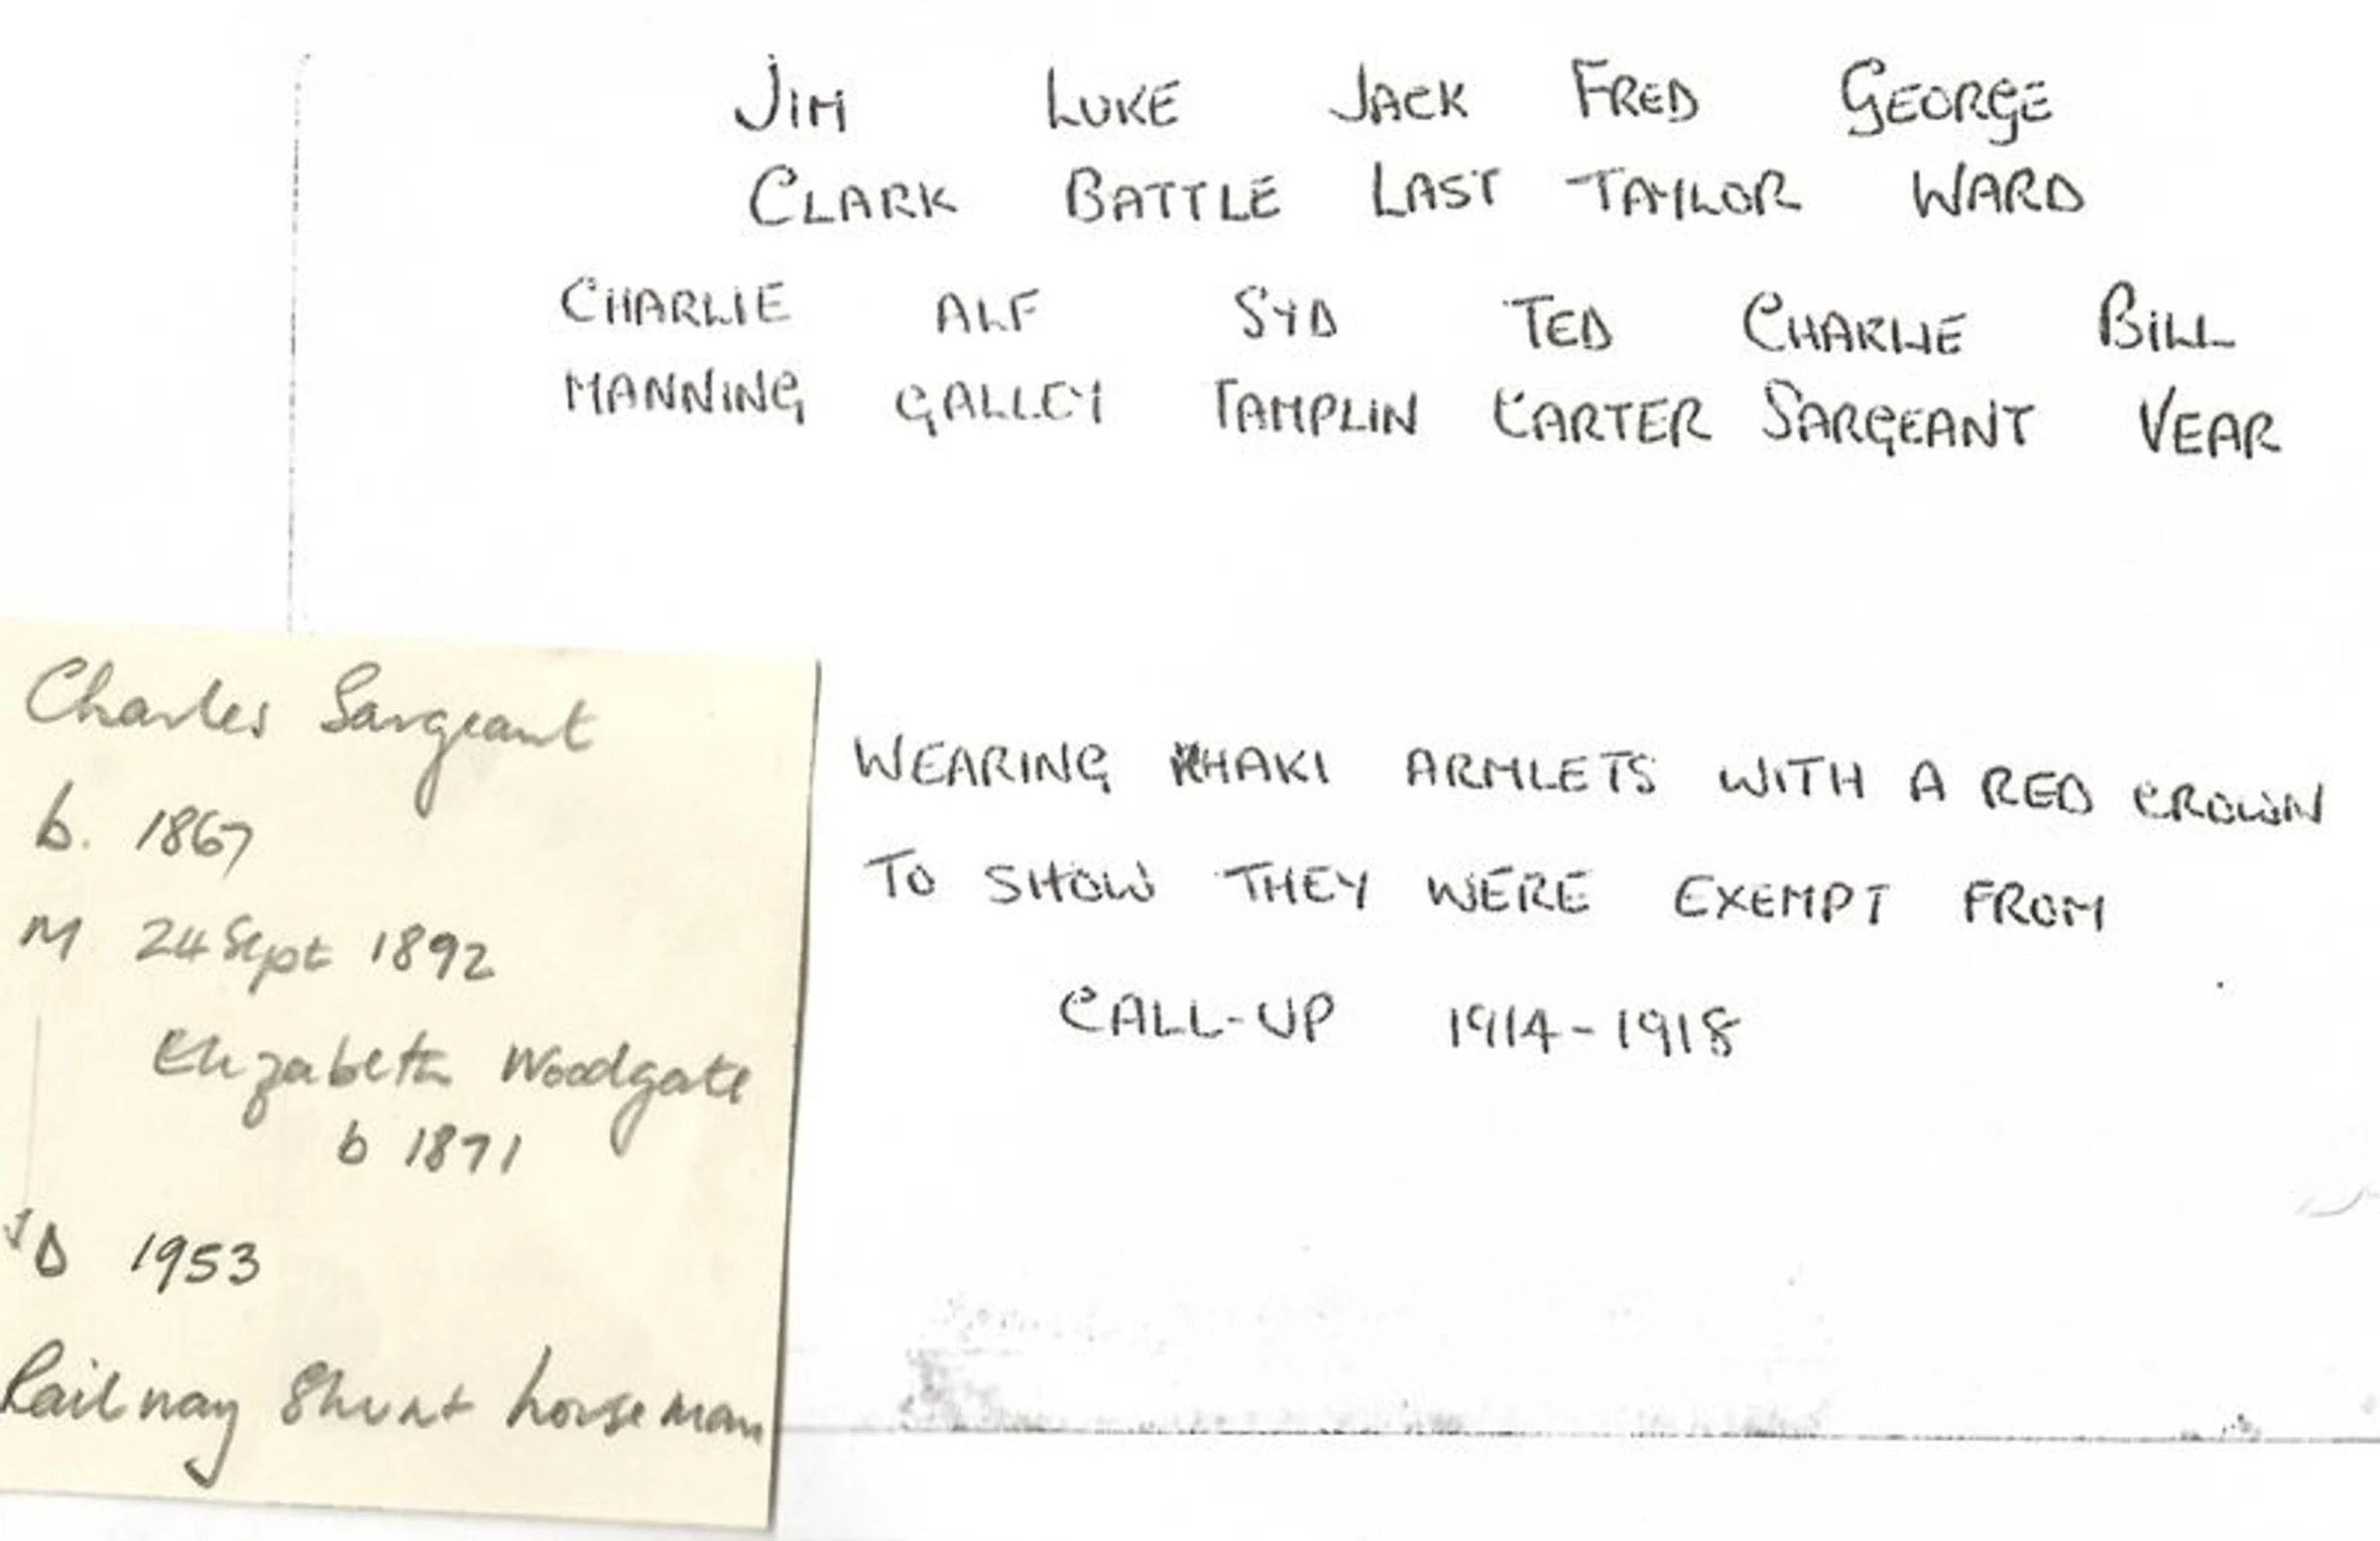 JIM LUKE JACK FRED GEORGE
CLARK BATTLE LAST TAYLOR WARD
CHARLIE ALF SYD TED CHARLIE BILL
MANNING GALLEY TAMPLIN CARTER SARGEANT VEAR
Charles Sargeant
b. 1867
M 24 Sept 1892
Elizabeth Woodgate
b 1871
D 1953
Railway Shunt horseman
WEARING KHAKI ARMLETS WITH A RED CROWN
TO SHOW THEY WERE EXEMPT FROM
CALL-UP 1914-1918